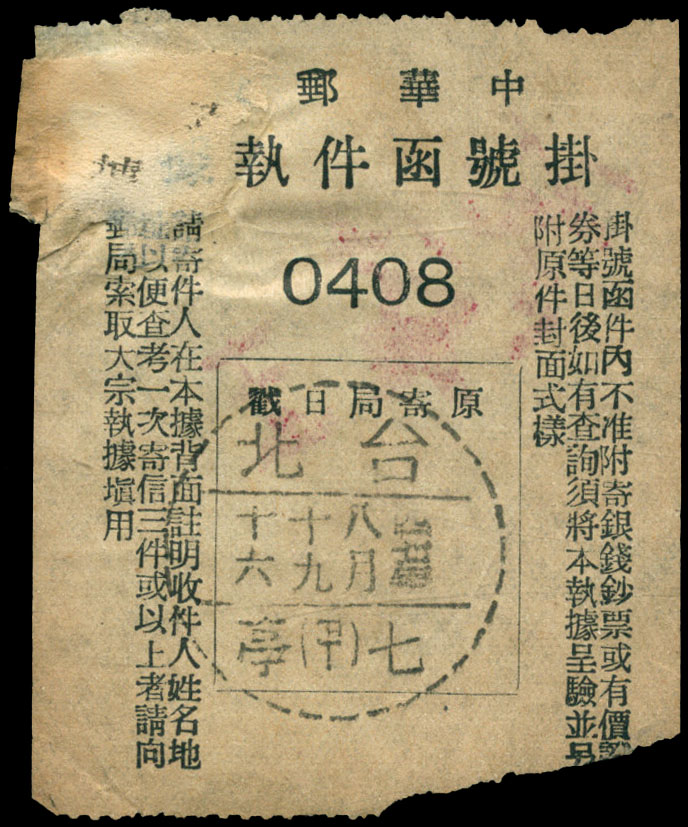 中華郵
掛號函件執據
0408
掛號函件內不准附寄銀錢鈔票或有價證
券等日後如有查詢須將本執據呈驗並另
附原件封面式樣
原寄局日戳
台北
八月
十九
十六
七(甲)亭
請寄件人在本據背面註明收件人姓名地
址以便查考一次寄信三件或以上者請向
郵局索取大宗執據塡用